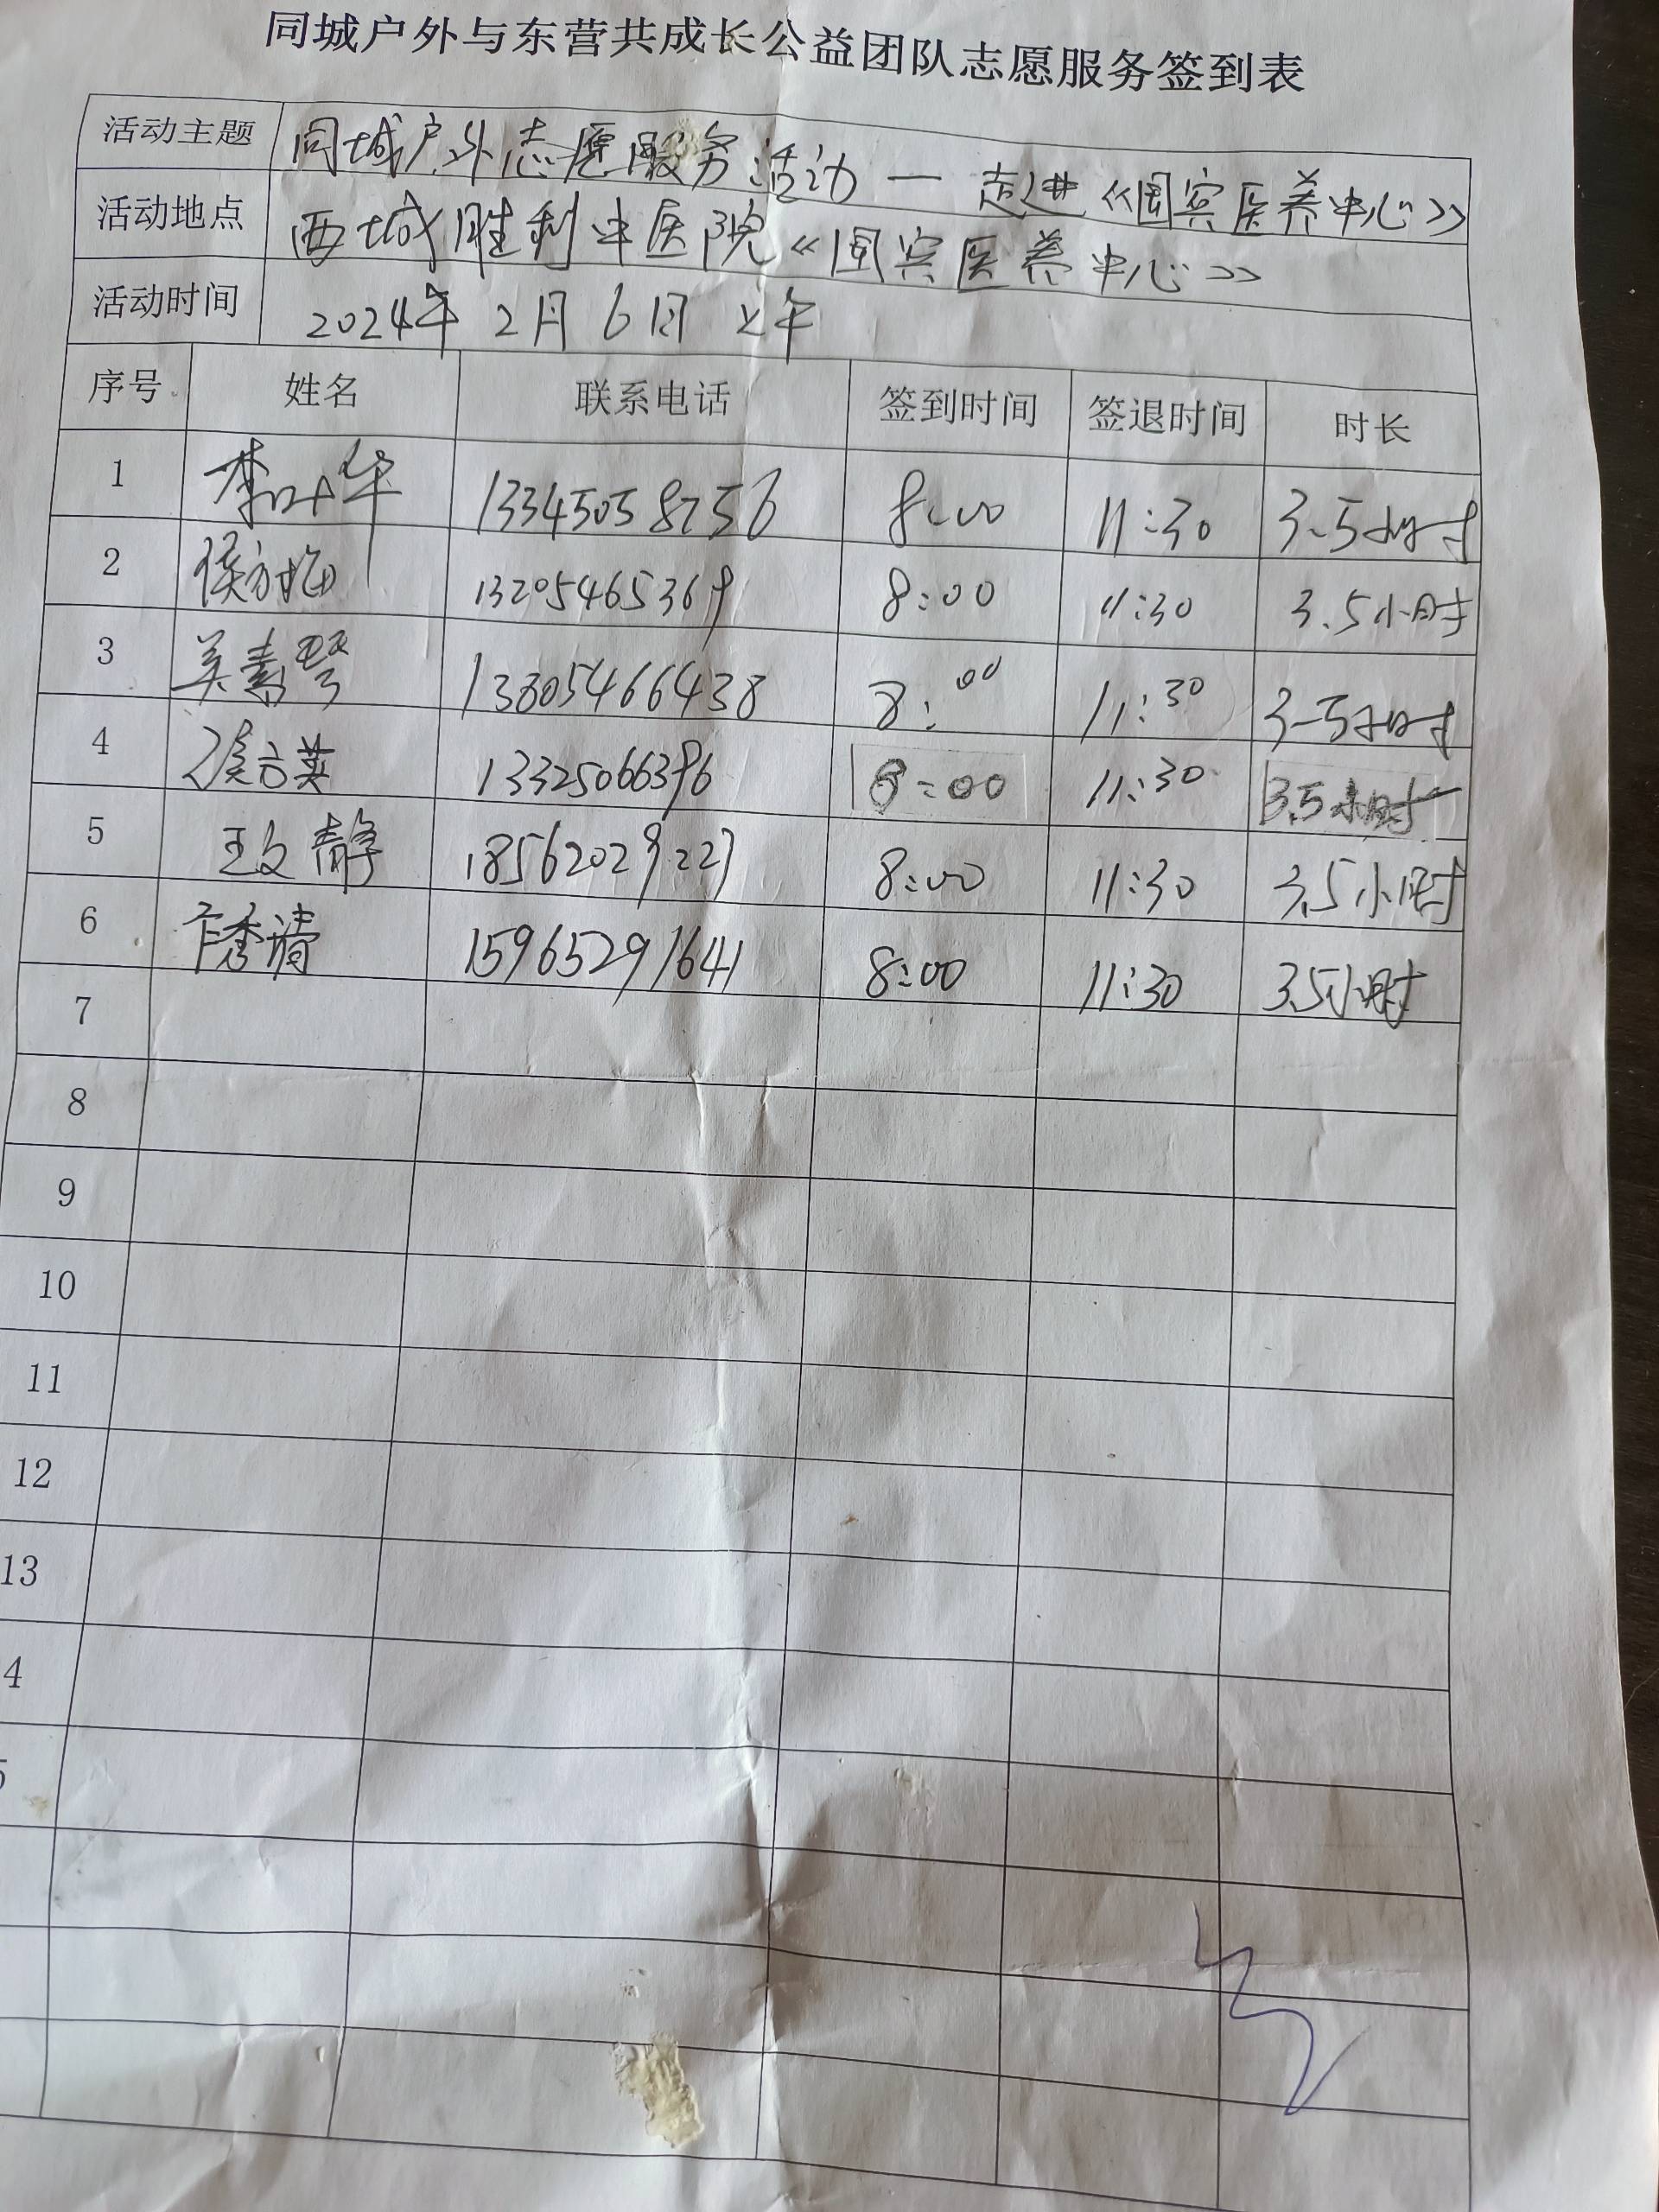 同城户外与东营共成长公益团队志愿服务签到表
活动主题 同城户外志愿服务活动 — 走进《国宾医养中心》
活动地点 西城胜利中医院《国宾医养中心》
活动时间 2024年 2月 6日 上午
序号 姓名 联系电话 签到时间 签退时间 时长
1 李叶华 13345058756 8:00 11:30 3.5小时
2 侯方梅 13205465369 8:00 11:30 3.5小时
3 吴素琴 13805466438 8:00 11:30 3.5小时
4 侯方英 13325066396 8:00 11:30 3.5小时
5 王文静 18562029227 8:00 11:30 3.5小时
6 秀清 15965291641 8:00 11:30 3.5小时
7
8
9
10
11
12
13
4
5